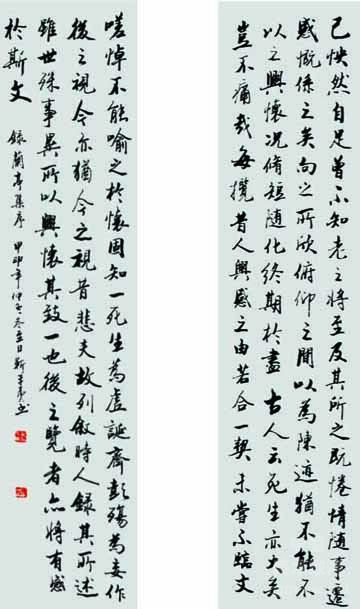 己怏然自足曾不知老之將至及其所之既惓情隨事遷
感慨係之矣向之所欣俯仰之間以為陳迹猶不能不
以之興懷況脩短隨化終期於盡古人云死生亦大矣
豈不痛哉每攬昔人興感之由若合一契未嘗不臨文
嗟悼不能喻之於懷固知一死生為虛誕齊彭殤為妄作
後之視今亦猶今之視昔悲夫故列敘時人錄其所述
雖世殊事異所以興懷其致一也後之覽者亦將有感
於斯文 錄蘭亭集序 年仲冬冬至日靳書